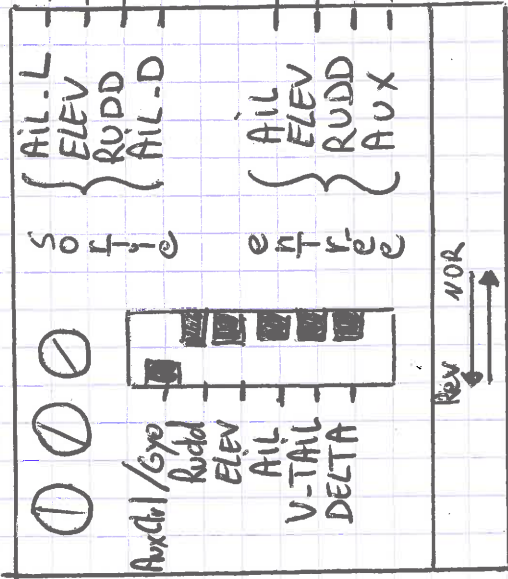 AiL-L
ELEV
RUDD
AiL-D
Sortie
AiL
ELEV
RUDD
AUX
entrée
Rudd
ELEV
AiL
V-TAiL
DELTA
Rev
NOR